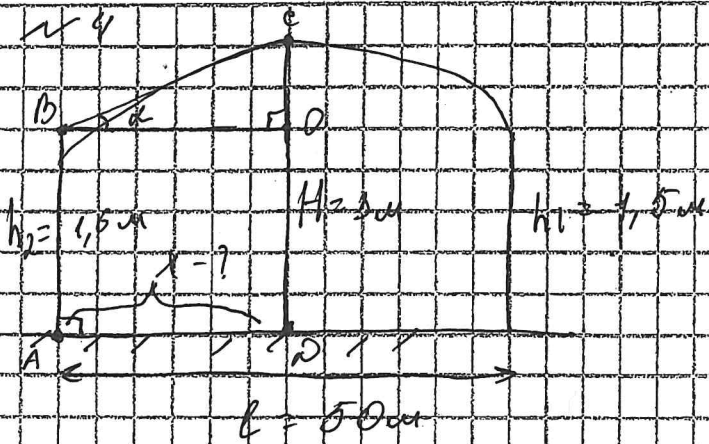 № 4
C
B α O
h₂ = 1,5 м H = 3 м h₁ = 1,5 м
x - ?
A D
l = 50 м